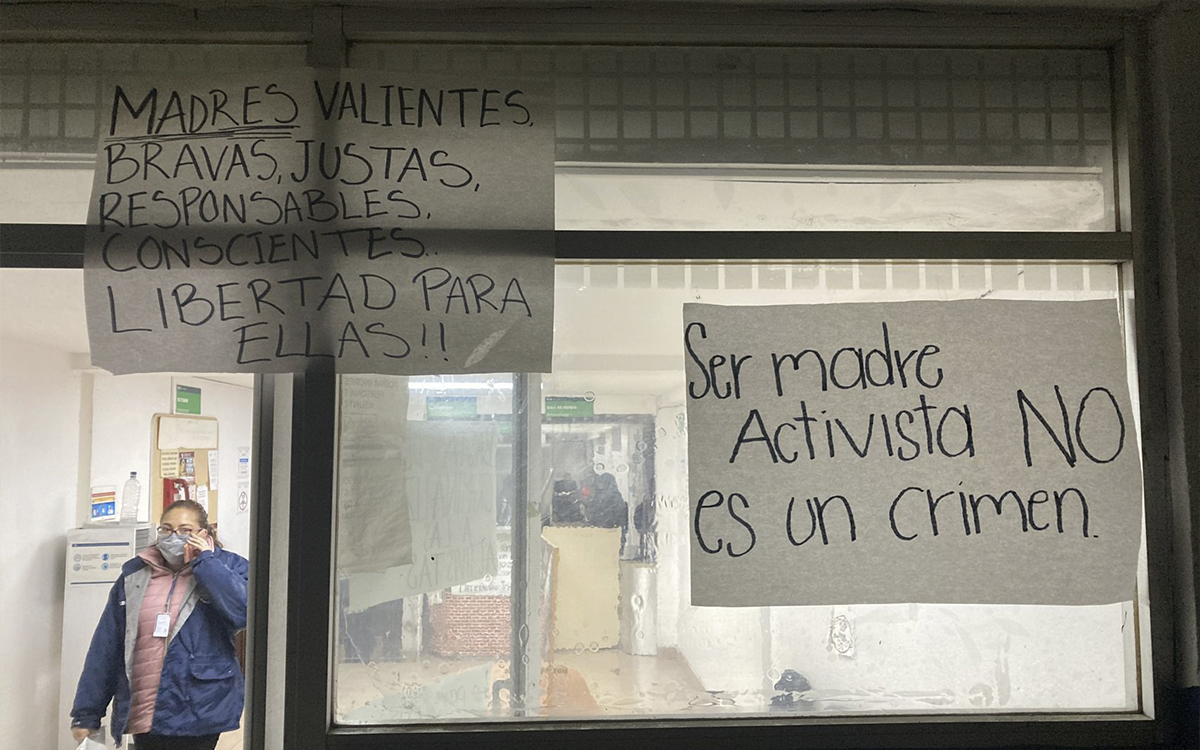 MADRES VALIENTES.
BRAVAS, JUSTAS,
RESPONSABLES.
CONSCIENTES..
LIBERTAD PARA
ELLAS!!
Ser madre
Activista NO
es un crimen.